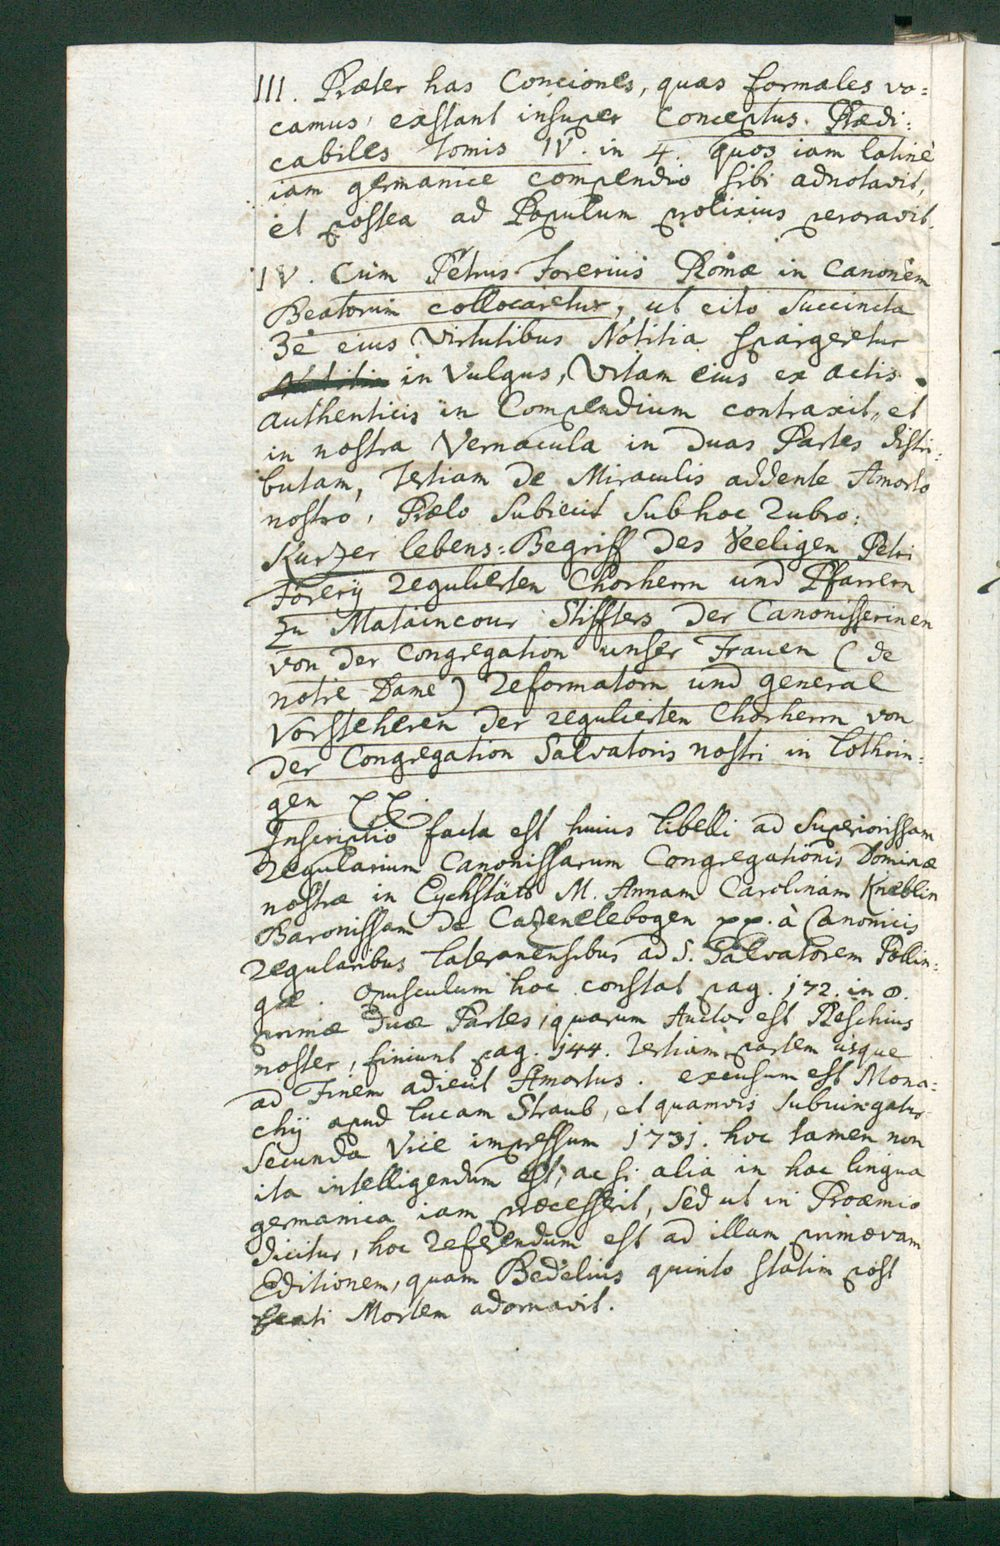 III. Præter has Conciones, quas formales vo=
camus, exstant insuper Conceptus Prædi:
cabiles tomis IV. in 4. quos iam latinè
iam germanice compendio sibi adnotavit,
et postea ad Populum prolixius peroravit.
IV. Cùm Petrus Forerius Romæ in Canonem
Beatorum collocaretur, ut cito succincta
De eius Virtutibus Notitia spargeretur
Notitia in Vulgus, Vitam eius ex actis
authenticis in Compendium contraxit, et
in nostra Vernacula in duas Partes distri:
butam, tertiam de Miraculis addente Amorto
nostro, Prælo subiecit sub hoc Rubro:
Kurzer lebens=Begriff des Seeligen Petri
Forerij regulierten Chorherrn und Pfarrern
zu Mataincour Stiffters der Canonisserinen
von der Congregation unser Frauen (de
notre Dame) Reformatorn und general
Vorsteheren der regulierten Chorherrn von
der Congregation Salvatoris nostri in Lothrin=
gen
Inscriptio facta est huius libelli ad Superiorissam
Regularium Canonissarum Congregationis Dominæ
nostræ in Eychstätt M. Annam Carolinam Knæblin
Baronissam de Cazenelebogen pp. à Canonicis
regularibus lateranensibus ad S. Salvatorem Pollin=
gæ. Opusculum hoc constat pag. 172. in 8.
primæ duæ Partes, quarum Auctor est Reschius
noster, finiunt pag. 144. tertiam partem usque
ad Finem adiecit Amortus. excusum est Mona=
chij apud Lucam Straub, et quamvis subiungatur
secunda Vice impressum 1731. hoc tamen non
ita intelligendum est, ac si alia in hac lingua
germanica iam præcesserit, sed ut in Proæmio
dicitur, hoc referendum est ad illam primævam
Editionem, quam Bedelius quinto statim post
Beati Mortem adornavit.